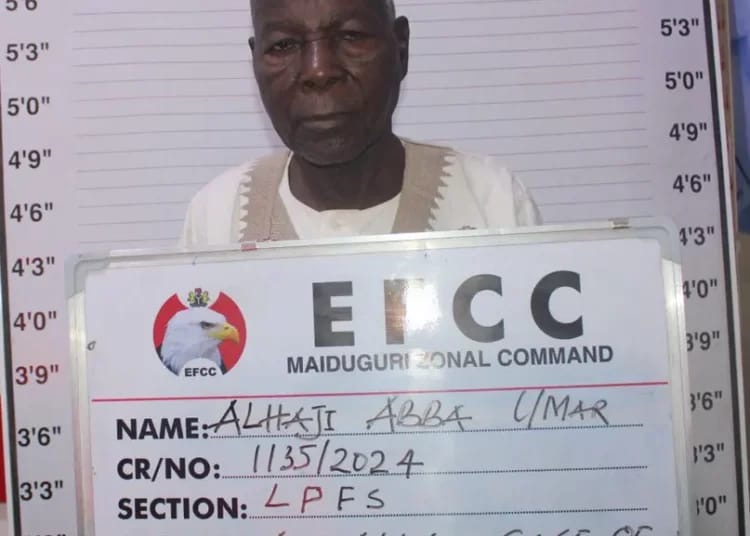 5'6
5'3"
5'0"
4'9"
4'6"
4'3"
4'0"
3'9"
3'6"
3'3"
5'3"
5'0"
4'9"
4'6"
4'3"
4'0"
3'9"
3'6"
3'3"
3'0"
EFCC
EFCC
MAIDUGURI ZONAL COMMAND
NAME: ALHAJI ABBA UMAR
CR/NO: 1135/2024
SECTION: LPFS